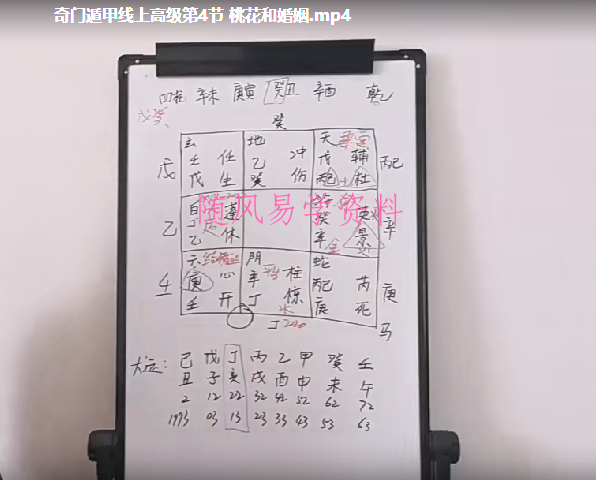 奇门遁甲线上高级第4节 桃花和婚姻.mp4
四柱 辛未 庚寅 癸丑 辛酉 乾
戊癸
癸
玄 地 天
壬 任 乙 冲 戊 辅
戊 生 癸 伤 杜
戊 丙己
随风易学资料
乙 蓬 癸 英 辛
乙 休 辛 景
天 阴 蛇
庚 心 辛 柱 丙己 芮
壬 开 丁 惊 庚 死
壬 庚
马
丁
大运: 己 戊 丁 丙 乙 甲 癸 壬
丑 子 亥 戌 酉 申 未 午
2 12 22 32 42 52 62 72
1993 03 13 23 33 43 53 63